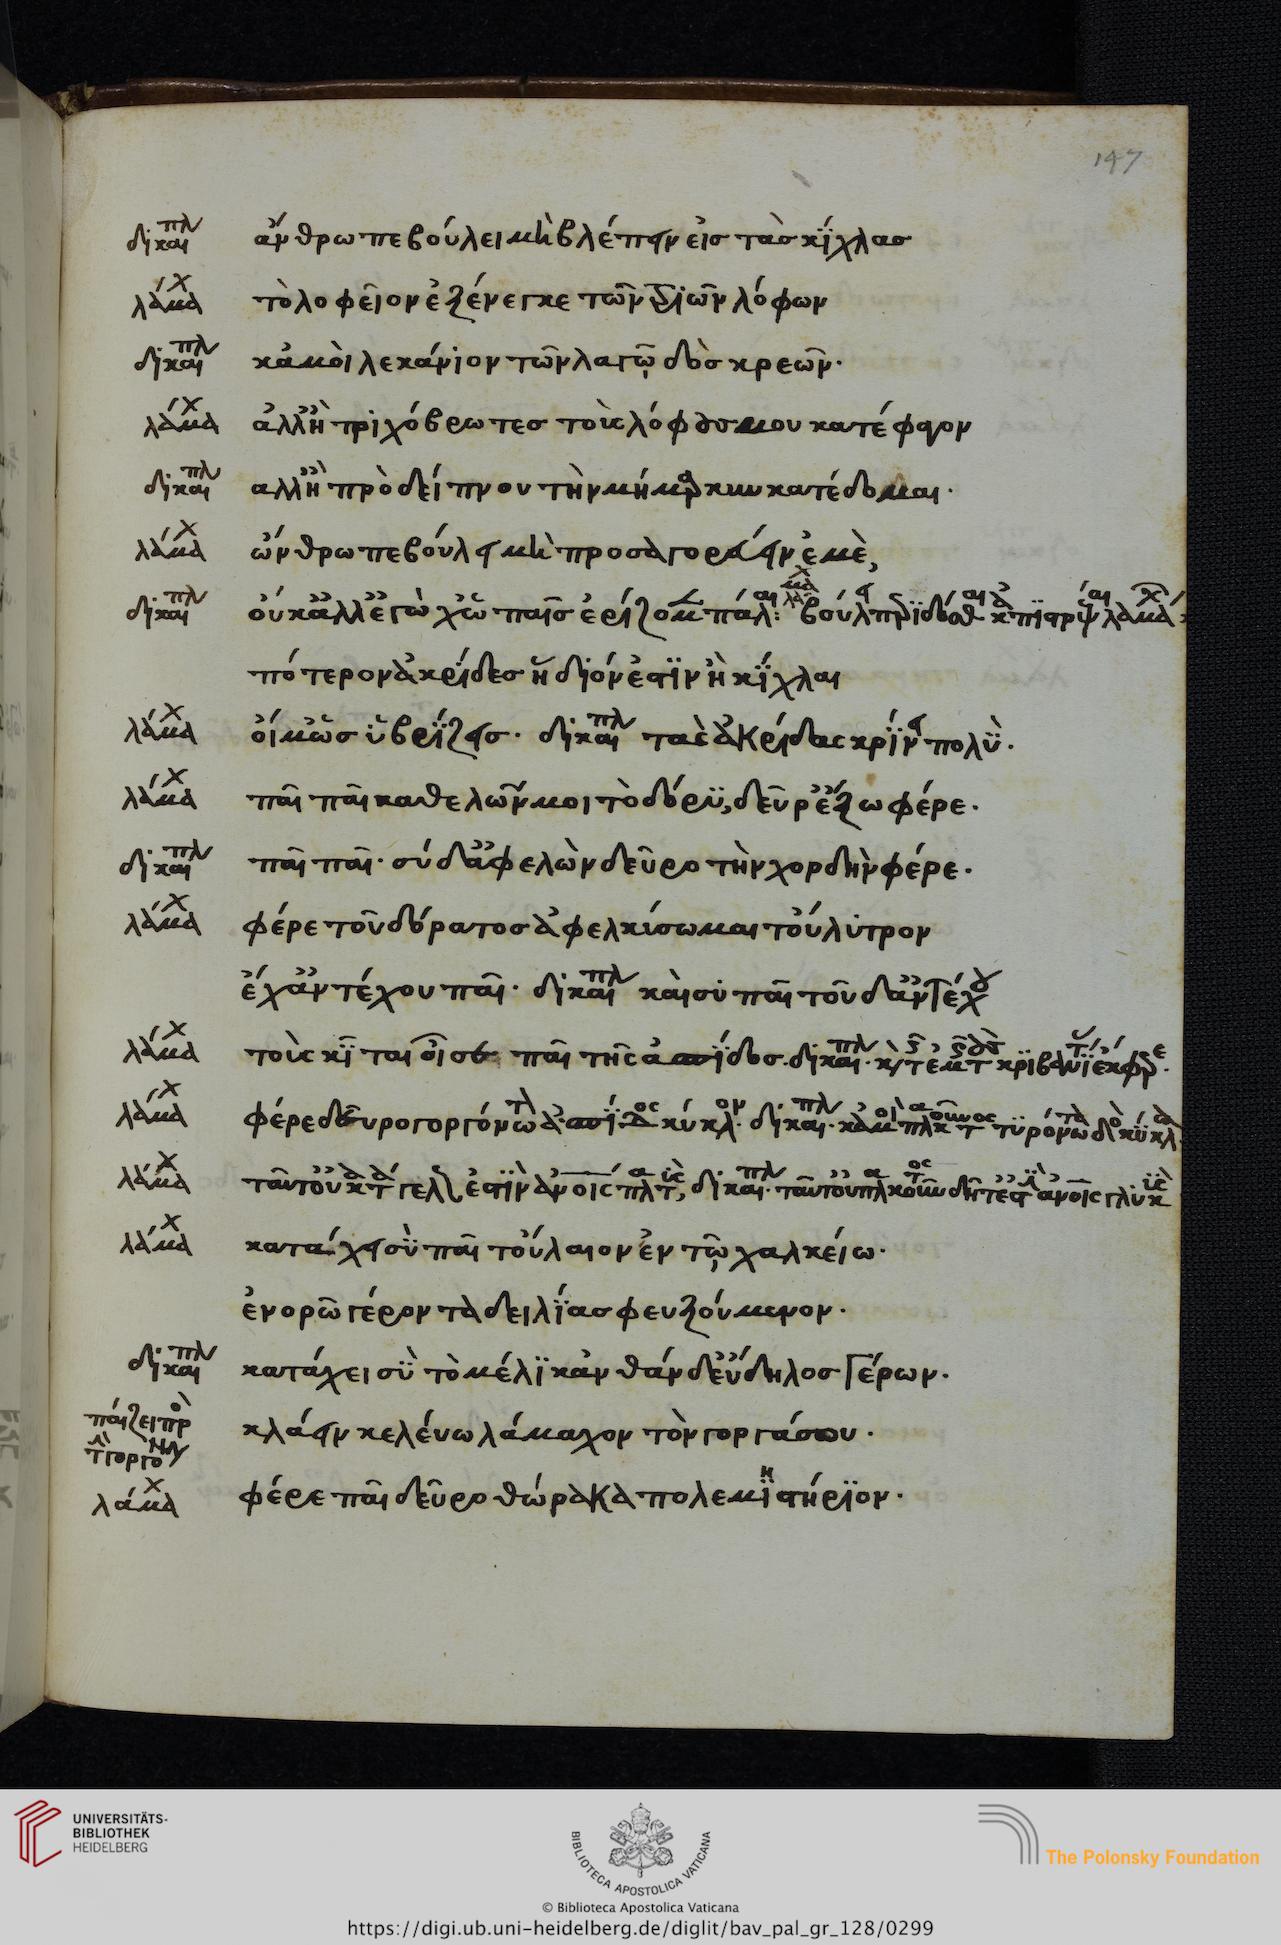 147
δικαι πλ ἄνθρωπε βούλει μὴ βλέπειν εἰς τὰς κίχλας
λάμα χ τὸ λοφεῖον ἐξένεγκε τῶν τριῶν λόφων
δικαι πλ κἀμοὶ λεκάνιον τῶν λαγῴ δὸς κρεῶν·
λάμα χ ἀλλ' ἢ τριχόβρωτες τοὺς λόφους μου κατέφαγον
δικαι πλ αλλ' ἢ πρὸ δείπνου τὴν μίμαρκυν κατέδομαι·
λάμα χ ὤνθρωπε βούλει μὴ προσαγορεύειν ἐμὲ,
δικαι πλ οὐκ ἀλλ' ἐγὼ χὠ παῖς ἐρίζομεν πάλαι: λάμα χ βούλει περιδόσθαι κἀπιτρέψαι λαμάχ
πότερον ἀκρίδες ἥδιόν ἐστιν ἢ κίχλαι
λάμα χ οἴμ' ὡς ὑβρίζεις· δικαι πλ τὰς ἀκρίδας κρίνει πολύ·
λάμα χ παῖ παῖ καθελών μοι τὸ δόρυ, δεῦρ' ἔξω φέρε·
δικαι πλ παῖ παῖ· σύ δ' ἀφελὼν δεῦρο τὴν χορδὴν φέρε·
λάμα χ φέρε τοῦ δόρατος ἀφελκύσωμαι τοὔλυτρον
ἔχ' ἀντέχου παῖ· δικαι πλ καὶ σὺ παῖ τοῦδ' ἀντέχου
λάμα χ τοὺς
λάμα χ φέρε δεῦρο γοργόνωτον ἀσπίδος κύκλον· δικαι πλ κἀμοὶ πλακοῦντος τυρόνωτον δὸς κύκλον
λάμα χ ταῦτ' οὐ κατάγελως ἐστὶν ἀνοις πλατὺς, δικαι πλ ταῦτ' οὐ πλακοῦς δῆτ' ἐστὶν ἀνοις γλυκὺς
λάμα χ κατάχει σὺ παῖ τοὔλαιον ἐν τῷ χαλκείω·
ἐνορῶ γέροντα δειλίας φευξούμενον·
δικαι πλ κατάχει σὺ τὸ μέλι κἀνθάνδ' εὔδηλος γέρων·
παίζει πρ τ γοργον κλάειν κελεύων λάμαχον τὸν γοργάσου·
λάμα χ φέρε παῖ δεῦρο θώρακα πολεμιστήριον·
UNIVERSITÄTS-
BIBLIOTHEK
HEIDELBERG
BIBLIOTECA APOSTOLICA VATICANA
The Polonsky Foundation
© Biblioteca Apostolica Vaticana
https://digi.ub.uni-heidelberg.de/diglit/bav_pal_gr_128/0299